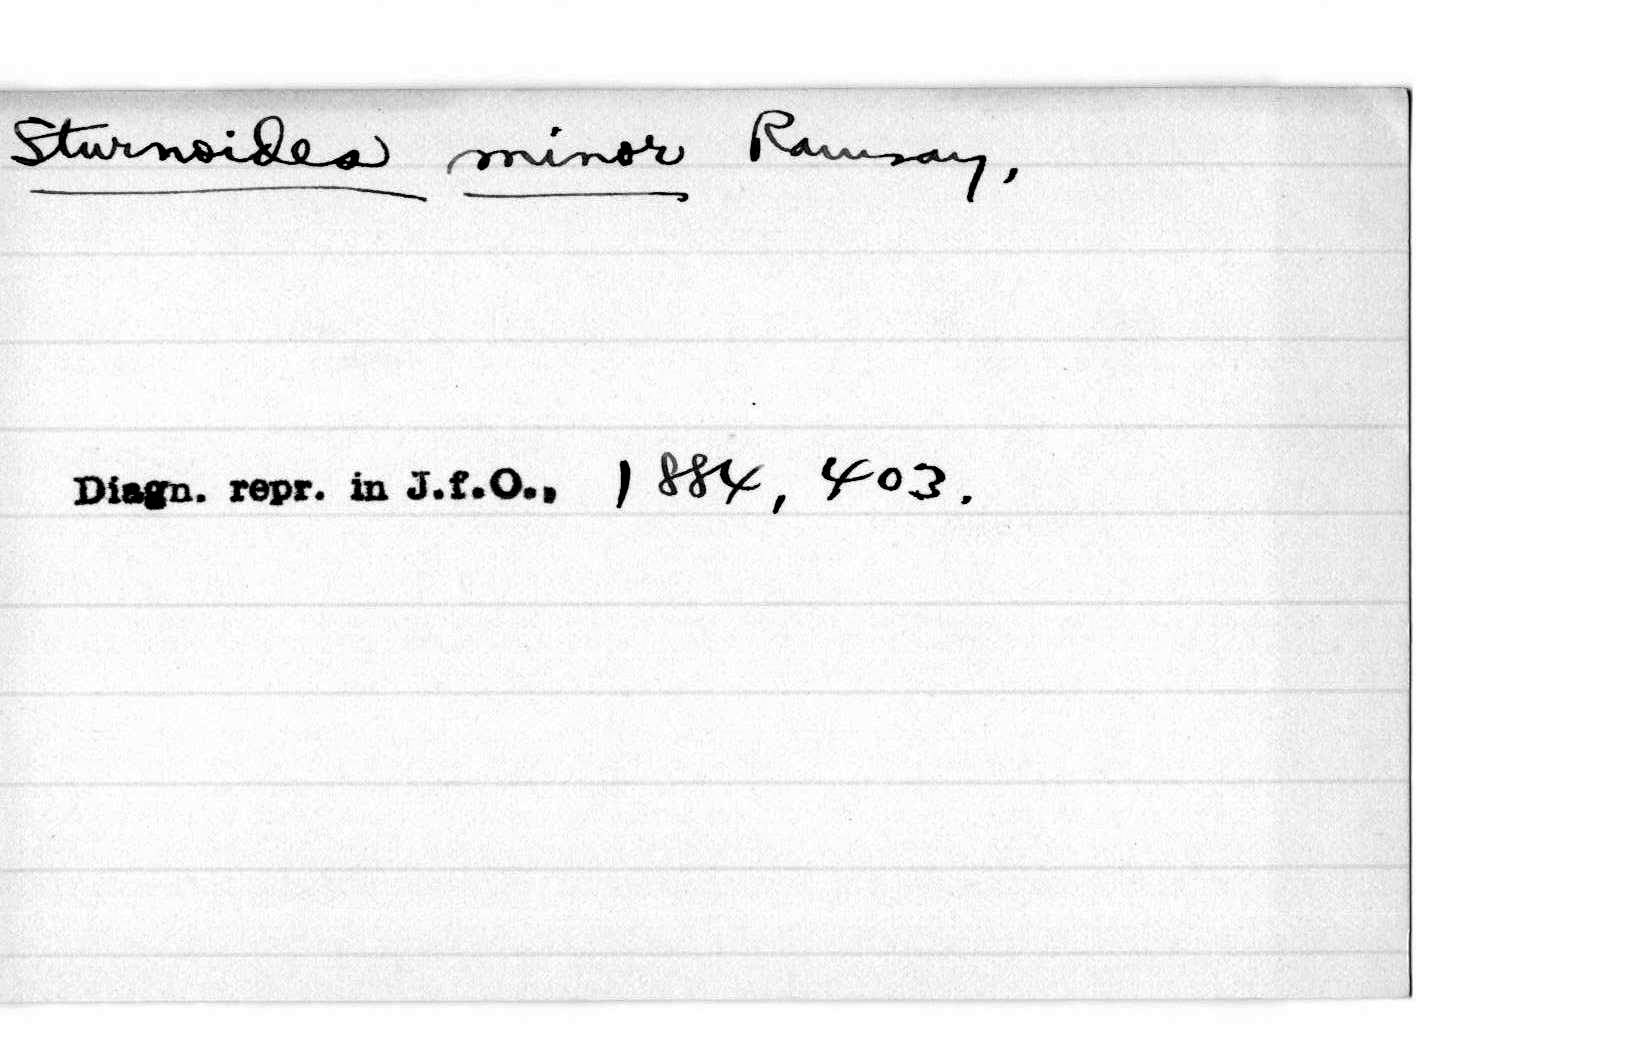 Sturnoides minor Ramsay,
Diagn. repr. in J.f.O., 1884, 403.